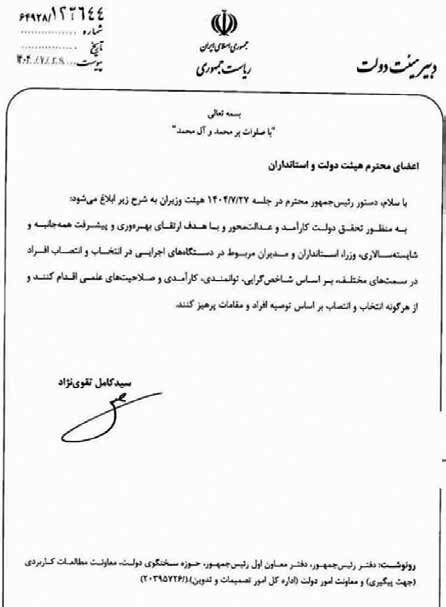 ۱۲۲۶۴۴/۶۴۹۲۸
شماره
تاریخ
پیوست
جمهوری اسلامی ایران
ریاست جمهوری
دبیر هیئت دولت
بسمه تعالی
"با صلوات بر محمد و آل محمد"
اعضای محترم هیئت دولت و استانداران
با سلام، دستور رئیس‌جمهور محترم در جلسه ۱۴۰۴/۷/۲۷ هیئت وزیران به شرح زیر ابلاغ می‌شود:
به منظور تحقق دولت کارآمد و عدالت‌محور و با هدف ارتقای بهره‌وری و پیشرفت همه‌جانبه و
شایسته‌سالاری، وزراء استانداران و مدیران مربوط در دستگاه‌های اجرایی در انتخاب و انتصاب افراد
در سمت‌های مختلف، بر اساس شاخص‌گرایی، توانمندی، کارآمدی و صلاحیت‌های علمی اقدام کنند و
از هرگونه انتخاب و انتصاب بر اساس توصیه افراد و مقامات پرهیز کنند.
سیدکامل تقوی‌نژاد
رونوشت: دفتر رئیس‌جمهور، دفتر معاون اول رئیس‌جمهور، حوزه سخنگوی دولت، معاونت مطالعات کاربردی
(جهت پیگیری) و معاونت امور دولت (اداره کل امور تصمیمات و تدوین)/(۲۰۳۹۵۷۲۶)